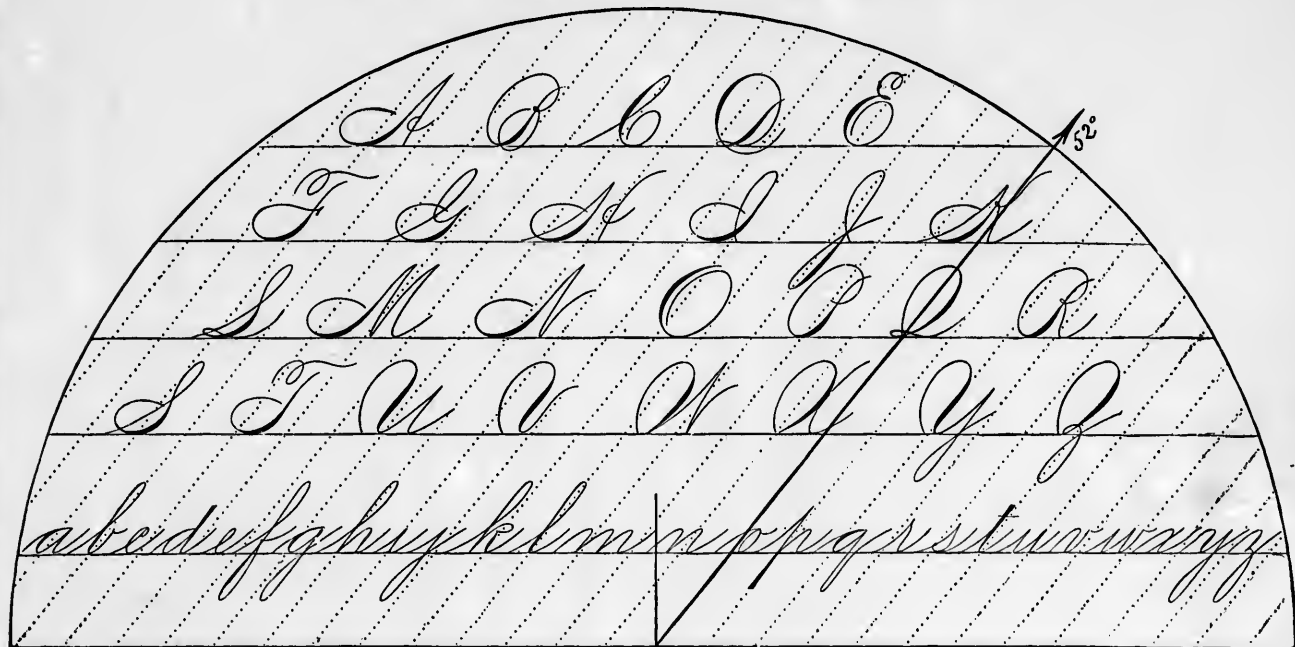 A B C D E
52°
F G H I J K
L M N O P Q R
S T U V W X Y Z
abcdefghijklmnopqrsstuvwxyz